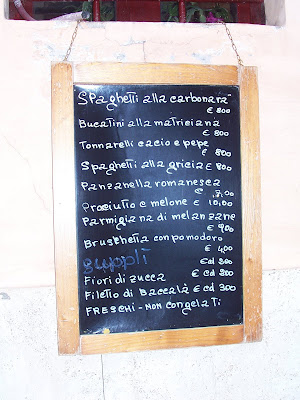 Spaghetti alla carbonara
€ 800
Bucatini alla matriciana
€ 800
Tonnarelli cacio e pepe
€ 800
Spaghetti alla gricia € 800
Panzanella romanesca
€ 7,00
Prosciutto e melone € 10,00
Parmigiana di melanzane
€ 900
Bruschetta con pomodoro
€ 4,00
supplì
€ cd 200
Fiori di zucca € cd 300
Filetto di Baccalà € cd 300
FRESCHI - NON CONGELATI